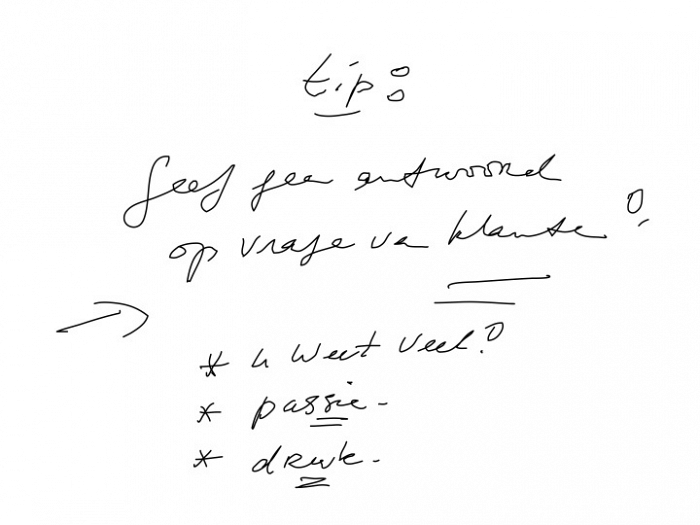 tip:
Geef geen antwoord
op vrage van klante!
* u weet veel!
* passie -
* druk -